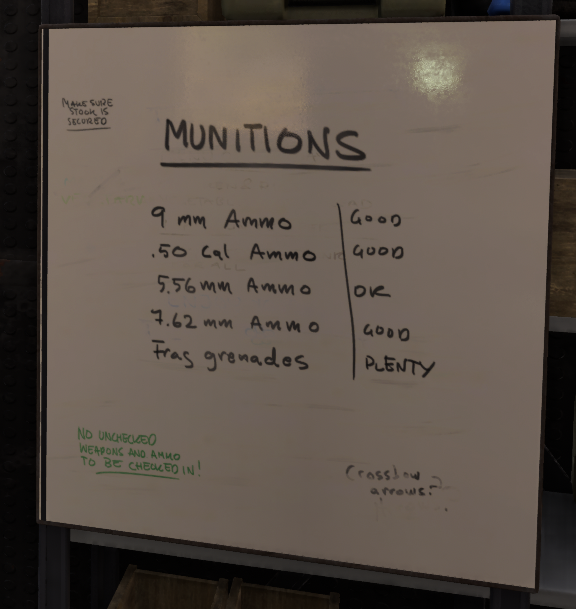 MAKE SURE
STOCK IS
SECURED
MUNITIONS
9 mm Ammo GOOD
.50 Cal Ammo GOOD
5.56mm Ammo OK
7.62 mm Ammo GOOD
Frag grenades PLENTY
NO UNCHECKED
WEAPONS AND AMMO
TO BE CHECKED IN!
Crossbow
arrows?